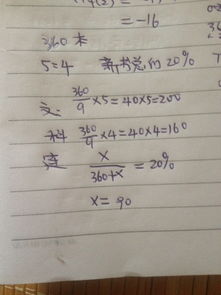 = -16
360本
5=4 新书总的20%
文: 360/9×5=40×5=200
科 360/9×4=40×4=160
x/360+x = 20%
x= 90